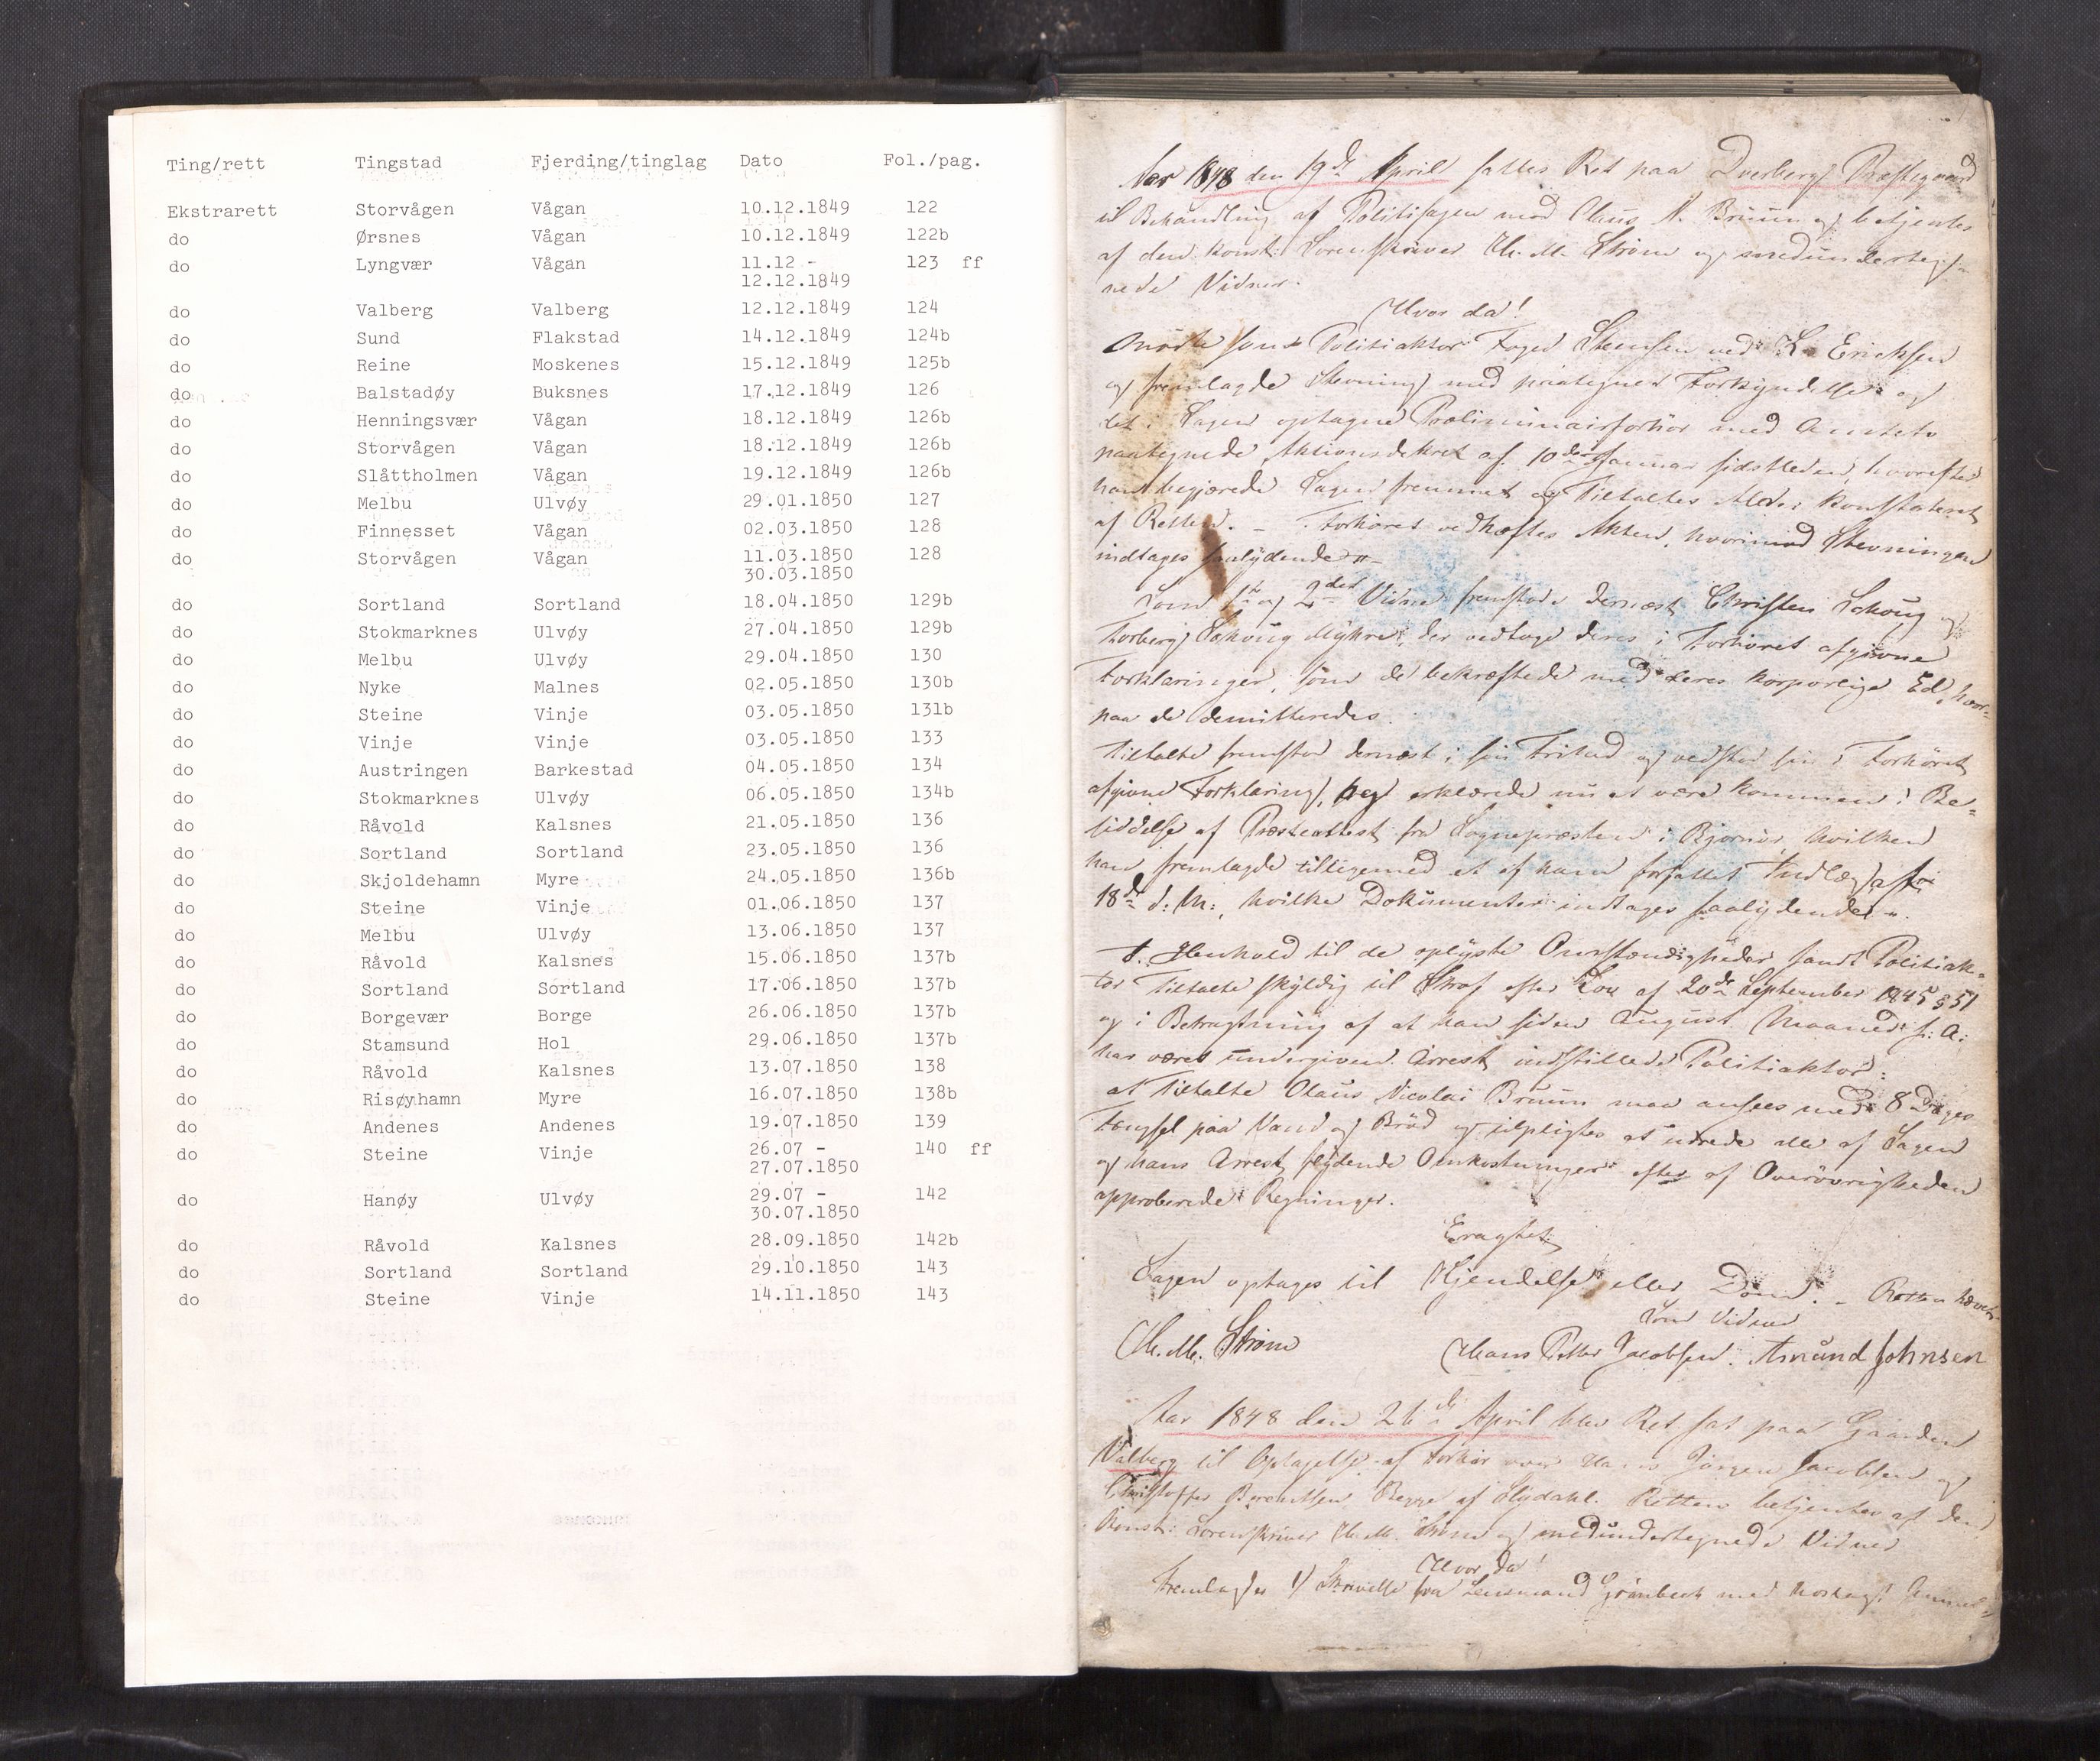 Ting/rett Tingstad Fjerding/tinglag Dato Fol./pag.
Ekstrarett Storvågen Vågan 10.12.1849 122
do Ørsnes Vågan 10.12.1849 122b
do Lyngvær Vågan 11.12 - 123 ff
12.12.1849
do Valberg Valberg 12.12.1849 124
do Sund Flakstad 14.12.1849 124b
do Reine Moskenes 15.12.1849 125b
do Balstadøy Buksnes 17.12.1849 126
do Henningsvær Vågan 18.12.1849 126b
do Storvågen Vågan 18.12.1849 126b
do Slåttholmen Vågan 19.12.1849 126b
do Melbu Ulvøy 29.01.1850 127
do Finnesset Vågan 02.03.1850 128
do Storvågen Vågan 11.03.1850 128
30.03.1850
do Sortland Sortland 18.04.1850 129b
do Stokmarknes Ulvøy 27.04.1850 129b
do Melbu Ulvøy 29.04.1850 130
do Nyke Malnes 02.05.1850 130b
do Steine Vinje 03.05.1850 131b
do Vinje Vinje 03.05.1850 133
do Austringen Barkestad 04.05.1850 134
do Stokmarknes Ulvøy 06.05.1850 134b
do Råvold Kalsnes 21.05.1850 136
do Sortland Sortland 23.05.1850 136
do Skjoldehamn Myre 24.05.1850 136b
do Steine Vinje 01.06.1850 137
do Melbu Ulvøy 13.06.1850 137
do Råvold Kalsnes 15.06.1850 137b
do Sortland Sortland 17.06.1850 137b
do Borgevær Borge 26.06.1850 137b
do Stamsund Hol 29.06.1850 137b
do Råvold Kalsnes 13.07.1850 138
do Risøyhamn Myre 16.07.1850 138b
do Andenes Andenes 19.07.1850 139
do Steine Vinje 26.07 - 140 ff
27.07.1850
do Hanøy Ulvøy 29.07 - 142
30.07.1850
do Råvold Kalsnes 28.09.1850 142b
do Sortland Sortland 29.10.1850 143
do Steine Vinje 14.11.1850 143
Aar 1848 den 19de April sattes Ret paa Dverberg Præstegaard
til Behandling af Politisagen mod Olaus N. Bruun og betjentes
af den konst: Sorenskriver Chr. M. Strøm og medunderteg-
nede Vidner.
Hvor da!
Mødte som Politiaktor Foged Steensen ved L. Ericksen
og fremlagde Stevning med paategnet Forkyndelse og
det i Sagen optagne Præliminairforhör med Amtets
paategnede Aktionsdekret af 10de Januar sidstleden, hvorefter
han begjærede Sagen fremmet og Tiltaltes Alder konstateret
af Retten. - Forhöret vedhæftes Akten, hvorimod Stevningen
indtages saalydende "-
Som 1ste og 2det Vidne fremstode dernæst Christen Schoug og
Torberg Schoug Myhre, der vedtoge deres i Forhöret afgivne
Forklaringer, som de bekræftede med deres korporlige Ed, hvor-
paa de demitteredes.
Tiltalte fremstod dernæst i sin Frihed og vedstod sin i Forhöret
afgivne Forklaring, erklærede nu at være kommen i Be-
siddelse af Præsteattest fra Sognepræsten i Bjørnør, hvilken
han fremlagde tilligemed et af ham forfattet Indlæg af
18de d: M:, hvilke Dokumenter indtages saalydende "-
I Henhold til de oplyste Omstændigheder fandt Politiak-
tor Tiltalte skyldig til Straf efter Lov af 20de September 1845 § 51
og i Betragtning af at han siden August Maaned f: A:
har været undergiven Arrest indstillede Politiaktor:
at Tiltalte Olaus Nicolai Bruun maa ansees med 8 Dages
Fængsel paa Vand og Bröd og tilpligtes at udrede alle af Sagen
og hans Arrest flydende Omkostninger efter af Overövrigheden
approberede Regninger.
Eragtet:
Sagen optages til Kjendelse eller Dom. - Retten hævet.
Som Vidner
Chr. M. Strøm Hans Petter Jacobsen. Amund Johnsen
Aar 1848 den 26de April blev Ret sat paa Gaarden
Valberg til Optagelse af Forhör over Hans Jörgen Jacobsen og
Christoffer Berentsen Begge af Slydahl. Retten betjentes af den
konst: Sorenskriver Chr. M. Strøm og medundertegnede Vidner
Hvor da!
Fremlagdes 1) Skrivelse fra Lensmand Grönbech med